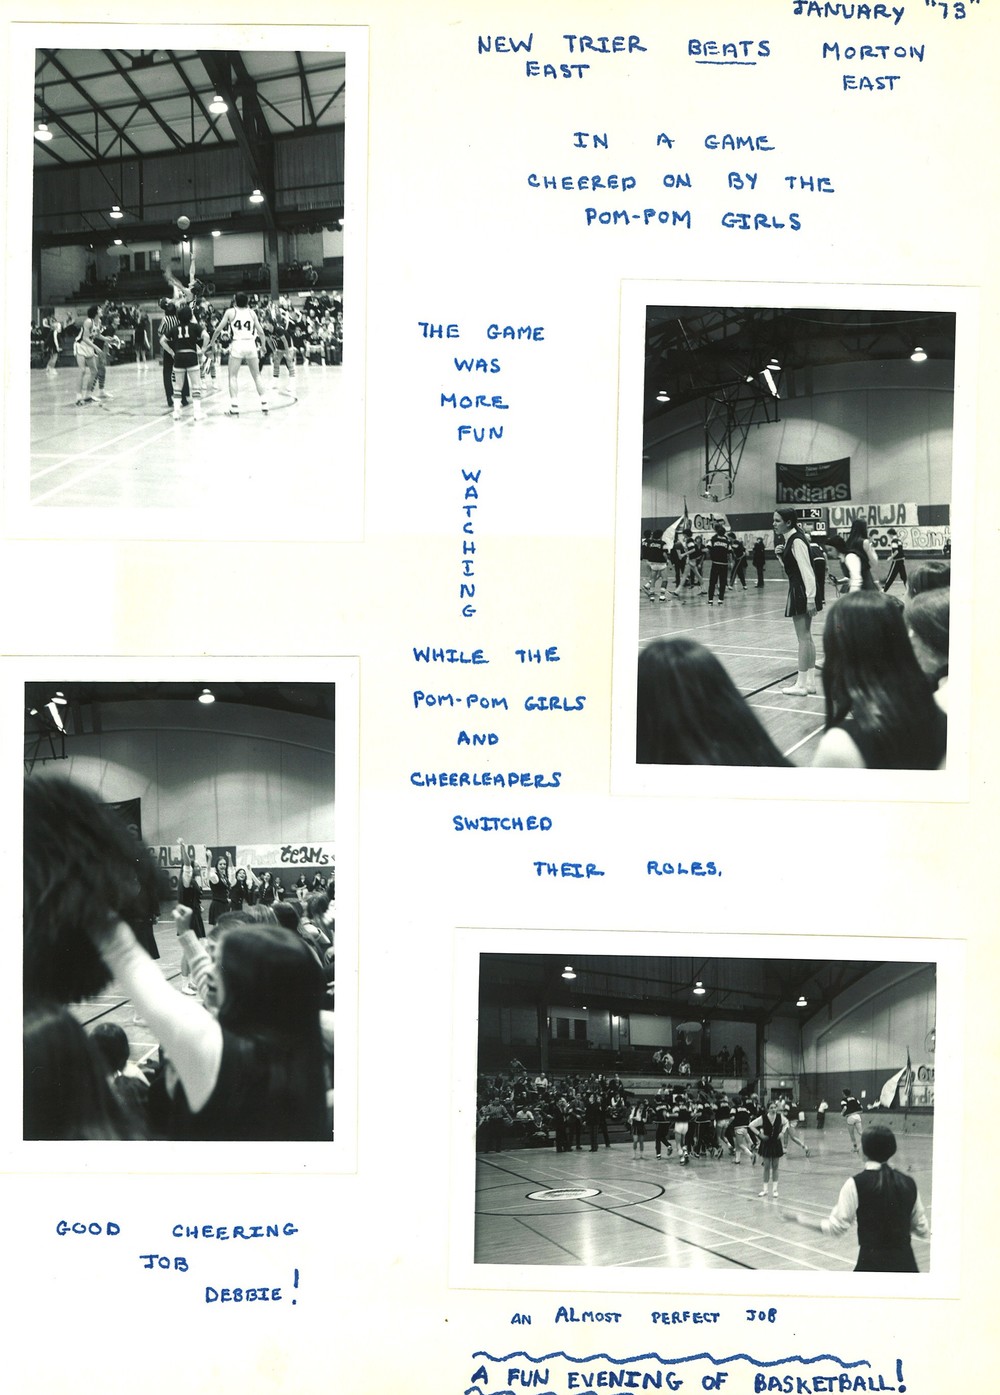 JANUARY "73"
NEW TRIER BEATS MORTON
EAST EAST
IN A GAME
CHEERED ON BY THE
POM-POM GIRLS
44
11
THE GAME
WAS
MORE
FUN
WATCHING
WHILE THE
POM-POM GIRLS
AND
CHEERLEADERS
SWITCHED
THEIR ROLES.
Indians
1 24
00
UNGAWA
Go
Point
TEAMS
GOOD CHEERING
JOB
DEBBIE!
AN ALMOST PERFECT JOB
A FUN EVENING OF BASKETBALL!